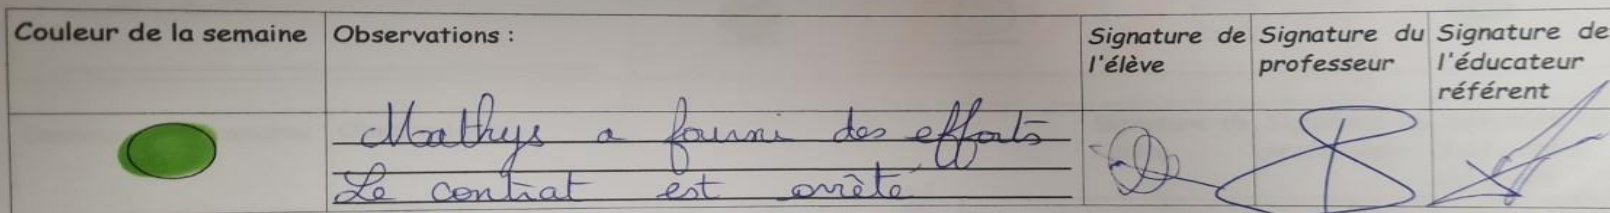 Couleur de la semaine
Observations :
Signature de
l'élève
Signature du
professeur
Signature de
l'éducateur
référent
Mathys a fourni des efforts
Le contrat est arrêté